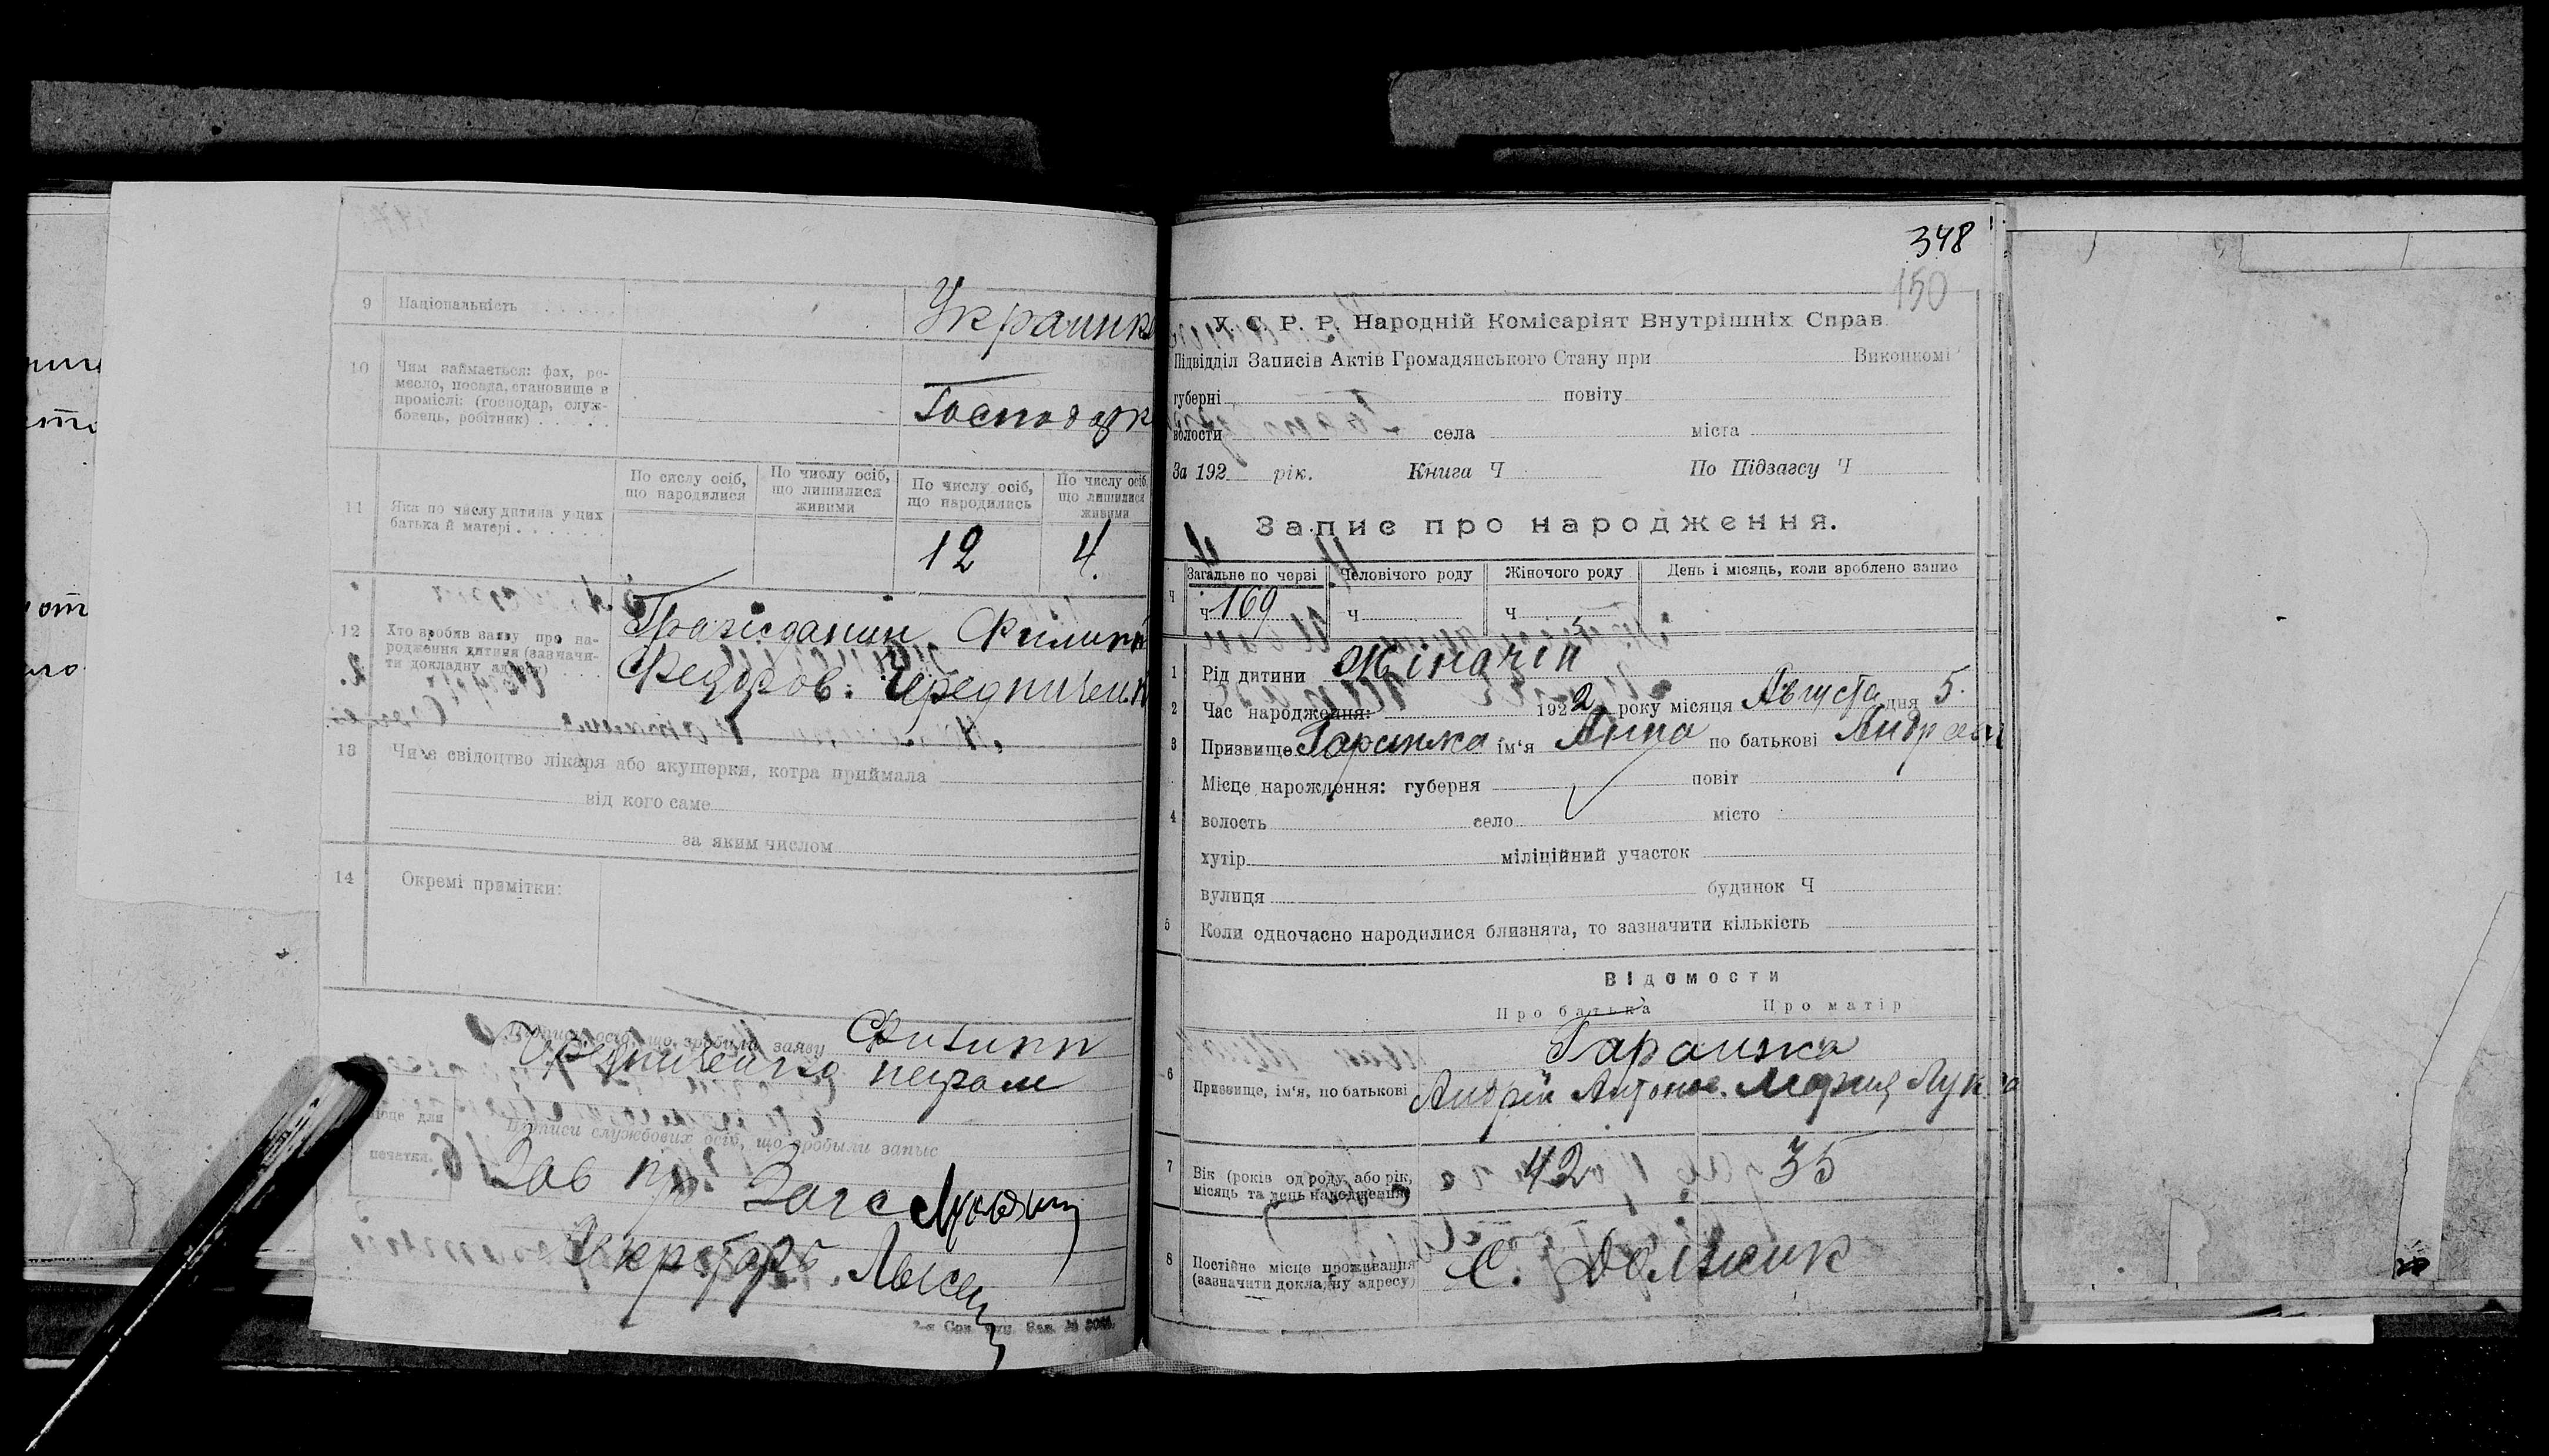 9 Національність Украинк
10 Чим займається: фах, ре-
месло, посада, становище в
проміслі: (господар, служ-
бовець, робітник)
Господарк
11 Яка по числу дитина у цих
батька й матері
По числу осіб, що народилися
По числу осіб, що лишилися живими
По числу осіб, що народились
По числу осіб, що лишилися живими
12 4
12 Хто зробив заяву про на-
родження дитини (зазначи-
ти докладну адресу)
Гражданин Филипп
Федоров. Чередничен
13 Чи є свідоцтво лікаря або акушерки, котра приймала
від кого саме
за яким числом
14 Окремі примітки:
Підписи осіб, що зробили заяву Филипп
Чередниченко
Місце для печатки.
Підписи службових осіб, що зробыли запыс
Зав Загс
Секретарь
348
150
У. С. Р. Р. Народній Комісаріят Внутрішніх Справ
Підвідділ Записів Актів Громадянського Стану при Виконкомі
губерні повіту
волости села міста
За 192 рік. Книга Ч По Підзагсу Ч
Запис про народження.
Загальне по черзі Человічого роду Жіночого роду День і місяць, коли зроблено запис
Ч Ч 169 Ч Ч
1 Рід дитини Жіночій
2 Час народження: 1922 року місяця Августа дня 5.
3 Призвище Гаранжа ім'я Анна по батькові Андреев
Місце нарождення: губерня повіт
4 волость село місто
хутір міліційний участок
вулиця будинок Ч
5 Коли одночасно народилися близнята, то зазначити кількість
Відомости
Про батька Про матір
Гаранжа
6 Призвище, ім'я, по батькові Андрій Антонов. Мария Лук
7 Вік (років од роду або рік,
місяць та день народження) 42 35
8 Постійне місце проживання
(зазначити докладну адресу) С. Должик